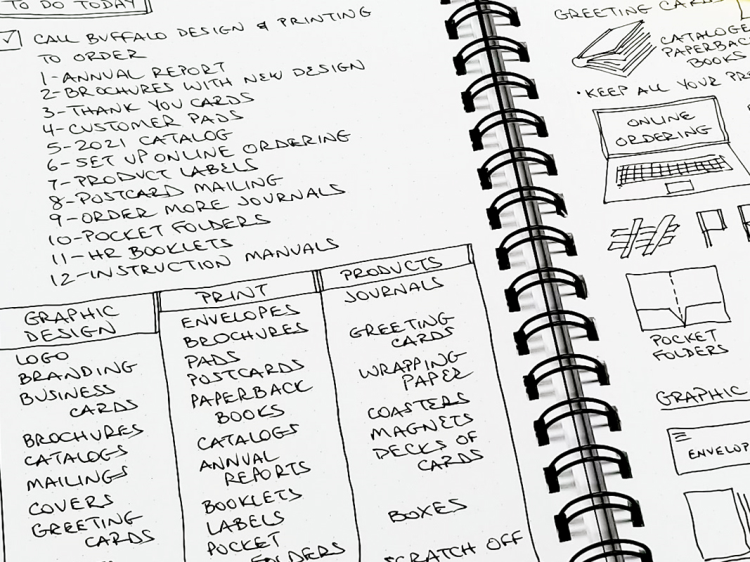 TO DO TODAY
CALL BUFFALO DESIGN & PRINTING
TO ORDER
1-ANNUAL REPORT
2-BROCHURES WITH NEW DESIGN
3-THANK YOU CARDS
4-CUSTOMER PADS
5-2021 CATALOG
6-SET UP ONLINE ORDERING
7-PRODUCT LABELS
8-POSTCARD MAILING
9-ORDER MORE JOURNALS
10-POCKET FOLDERS
11-HR BOOKLETS
12-INSTRUCTION MANUALS
GRAPHIC
DESIGN
LOGO
BRANDING
BUSINESS
CARDS
BROCHURES
CATALOGS
MAILINGS
COVERS
GREETING
CARDS
PRINT
ENVELOPES
BROCHURES
PADS
POSTCARDS
PAPERBACK
BOOKS
CATALOGS
ANNUAL
REPORTS
BOOKLETS
LABELS
POCKET
FOLDERS
PRODUCTS
JOURNALS
GREETING
CARDS
WRAPPING
PAPER
COASTERS
MAGNETS
DECKS OF
CARDS
BOXES
SCRATCH OFF
GREETING CARDS
CATALOGS
PAPERBACK
BOOKS
•KEEP ALL YOUR
ONLINE
ORDERING
POCKET
FOLDERS
GRAPHIC
ENVELOP